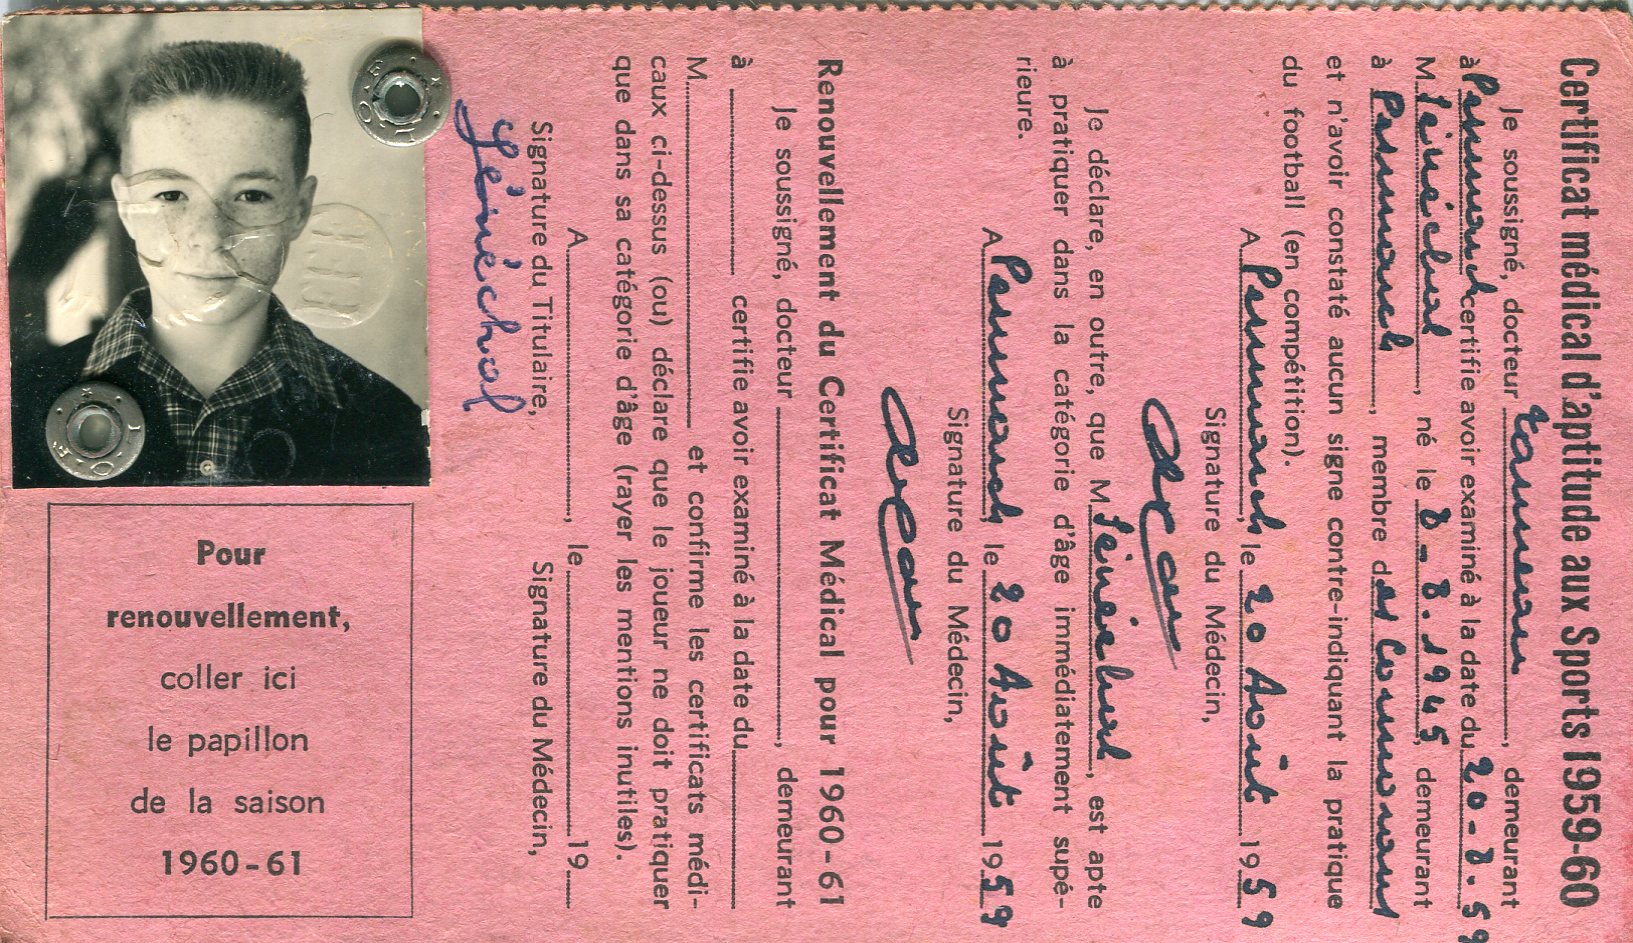 Certificat médical d'aptitude aux Sports 1959-60
Je soussigné, docteur demeurant
à Penmarch certifie avoir examiné à la date du 20-8.59
M. Sénéchal, né le 8-8.1945, demeurant
à Penmarch, membre des Cormorans
et n'avoir constaté aucun signe contre-indiquant la pratique
du football (en compétition).
A Penmarch, le 20 Août 1959
Signature du Médecin,
Je déclare, en outre, que M. Sénéchal, est apte
à pratiquer dans la catégorie d'âge immédiatement supé-
rieure.
A Penmarch, le 20 Août 1959
Signature du Médecin,
Renouvellement du Certificat Médical pour 1960-61
Je soussigné, docteur , demeurant
à certifie avoir examiné à la date du
M. et confirme les certificats médi-
caux ci-dessus (ou) déclare que le joueur ne doit pratiquer
que dans sa catégorie d'âge (rayer les mentions inutiles).
A , le 19
Signature du Titulaire, Signature du Médecin,
Sénéchal
Pour
renouvellement,
coller ici
le papillon
de la saison
1960-61